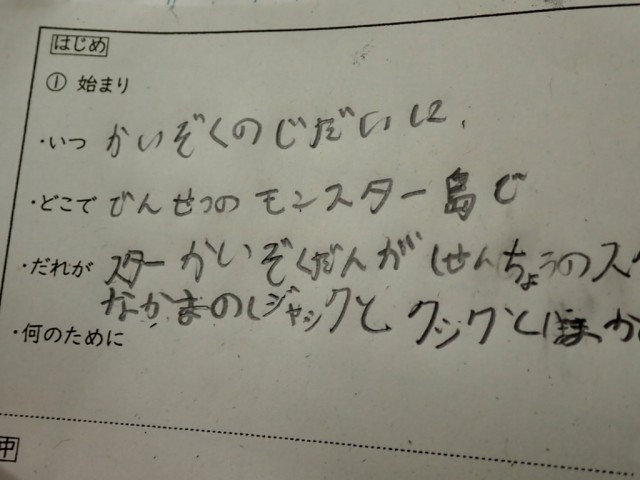 はじめ
① 始まり
・いつ かいぞくのじだいに、
・どこで でんせつの モンスター島で
・だれが スターかいぞくだんが せんちょうのス
なかまのジャックと クックとほか
・何のために
中